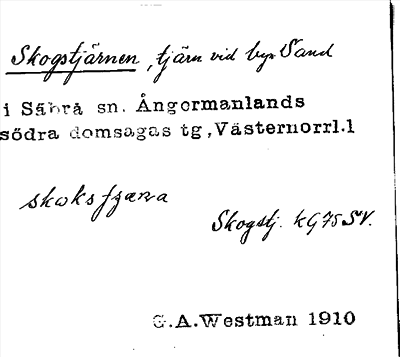 Skogstjärnen, tjärn vid byn Sand
i Säbrå sn. Ångermanlands
södra domsagas tg, Västernorrl.l
skoksfjæṛṇa
Skogstj. KG75SV.
G.A.Westman 1910